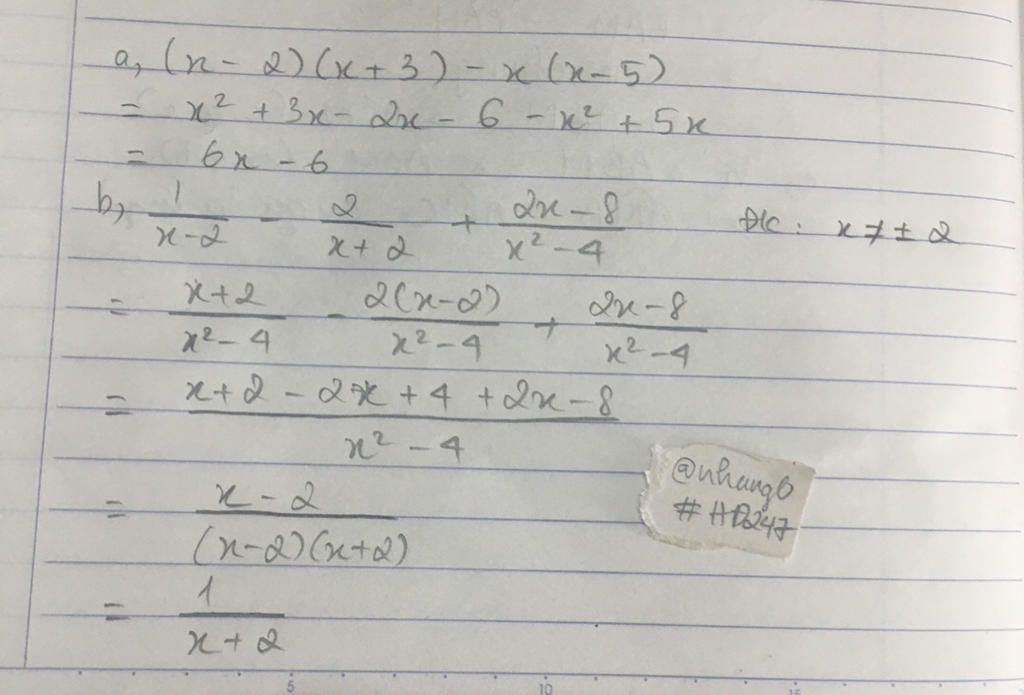 a, (x - 2)(x + 3) - x(x - 5)
= x² + 3x - 2x - 6 - x² + 5x
= 6x - 6
b, 1/(x - 2) - 2/(x + 2) + (2x - 8)/(x² - 4) ĐK: x ≠ ± 2
= (x + 2)/(x² - 4) - 2(x - 2)/(x² - 4) + (2x - 8)/(x² - 4)
= (x + 2 - 2x + 4 + 2x - 8)/(x² - 4)
= (x - 2)/((x - 2)(x + 2))
= 1/(x + 2)
@nhung6
#HD247
5 10 15